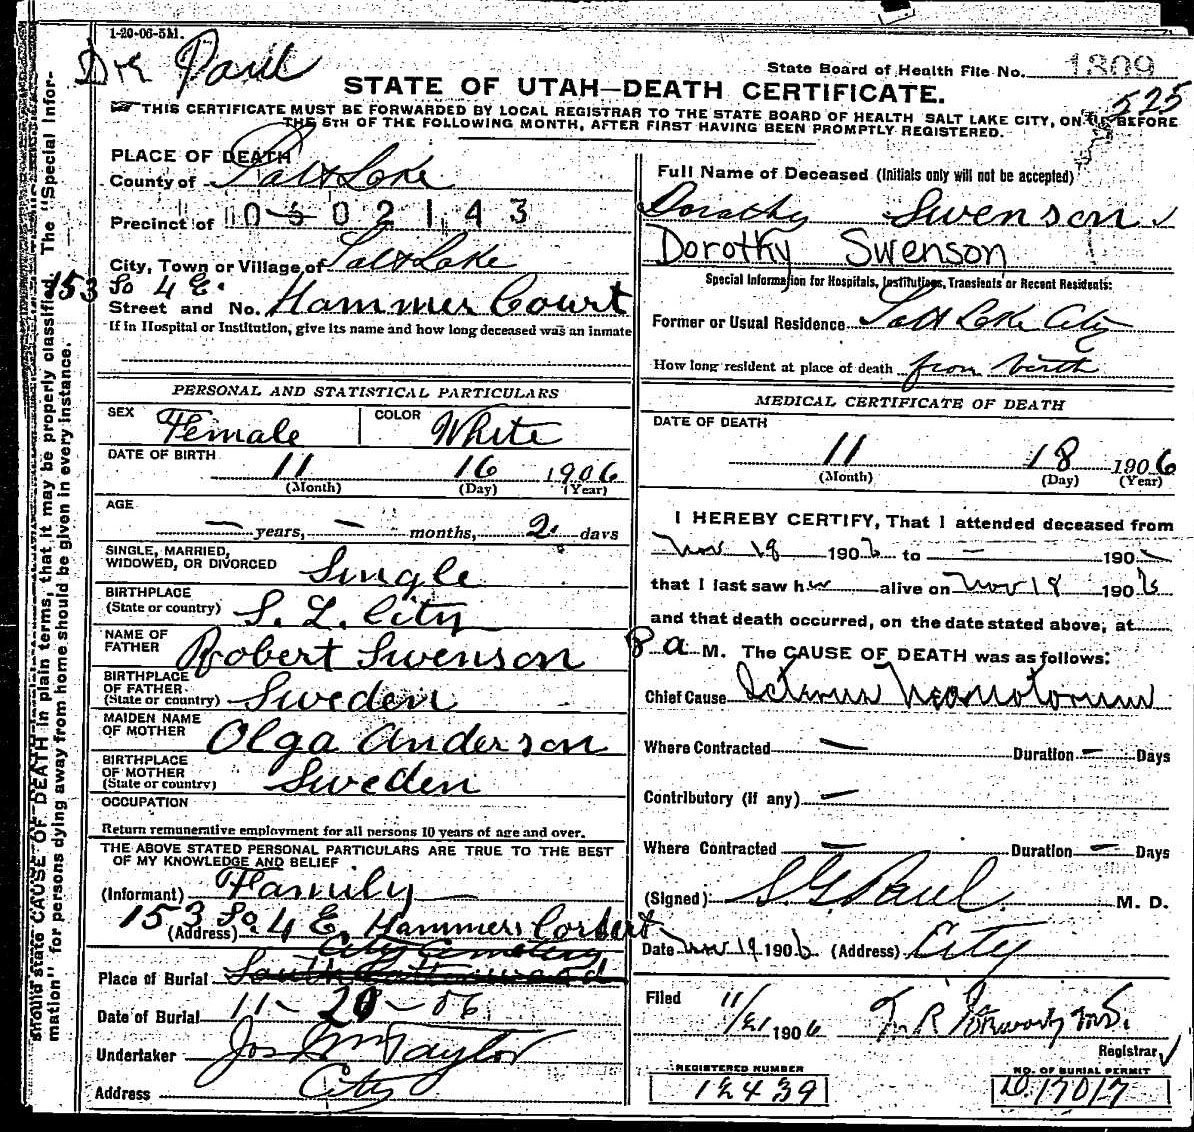 1-20-06-5M.
Dr Paul
State Board of Health File No. 1309
525
STATE OF UTAH—DEATH CERTIFICATE.
THIS CERTIFICATE MUST BE FORWARDED BY LOCAL REGISTRAR TO THE STATE BOARD OF HEALTH SALT LAKE CITY, ON OR BEFORE
THE 5TH OF THE FOLLOWING MONTH, AFTER FIRST HAVING BEEN PROMPTLY REGISTERED.
should state CAUSE OF DEATH in plain terms, that it may be properly classified. The "Special Infor-
mation" for persons dying away from home should be given in every instance.
PLACE OF DEATH
County of Salt Lake
Precinct of 0 5 0 2 1 4 3
City, Town or Village of Salt Lake
153 So 4 E.
Street and No. Hammer Court
If in Hospital or Institution, give its name and how long deceased was an inmate
PERSONAL AND STATISTICAL PARTICULARS
SEX Female COLOR White
DATE OF BIRTH
11 16 1906
(Month) (Day) (Year)
AGE
— years, — months, 2 days
SINGLE, MARRIED,
WIDOWED, OR DIVORCED Single
BIRTHPLACE
(State or country) S. L. City
NAME OF
FATHER Robert Swenson
BIRTHPLACE
OF FATHER
(State or country) Sweden
MAIDEN NAME
OF MOTHER Olga Anderson
BIRTHPLACE
OF MOTHER
(State or country) Sweden
OCCUPATION
Return remunerative employment for all persons 10 years of age and over.
THE ABOVE STATED PERSONAL PARTICULARS ARE TRUE TO THE BEST
OF MY KNOWLEDGE AND BELIEF
(Informant) Family
153 So. 4 E. Hammers Corbert
(Address)
City Cemetery
Place of Burial
Date of Burial 11-20-06
Undertaker Jos Wm Taylor
Address City
Full Name of Deceased (Initials only will not be accepted)
Dorathy Swenson
Dorothy Swenson
Special Information for Hospitals, Institutions, Transients or Recent Residents:
Former or Usual Residence Salt Lake City
How long resident at place of death from birth
MEDICAL CERTIFICATE OF DEATH
DATE OF DEATH
11 18 1906
(Month) (Day) (Year)
I HEREBY CERTIFY, That I attended deceased from
Nov 18 1906 to — 190
that I last saw her alive on Nov 18 1906
and that death occurred, on the date stated above, at
8 a M. The CAUSE OF DEATH was as follows:
Chief Cause Icterus Neonatorum
Where Contracted — Duration — Days
Contributory (if any) —
Where Contracted — Duration — Days
(Signed) S. G. Paul M. D.
Date Nov 19 1906 (Address) City
Filed 11/21 1906 M.D.
Registrar
REGISTERED NUMBER
12439
NO. OF BURIAL PERMIT
D.17017